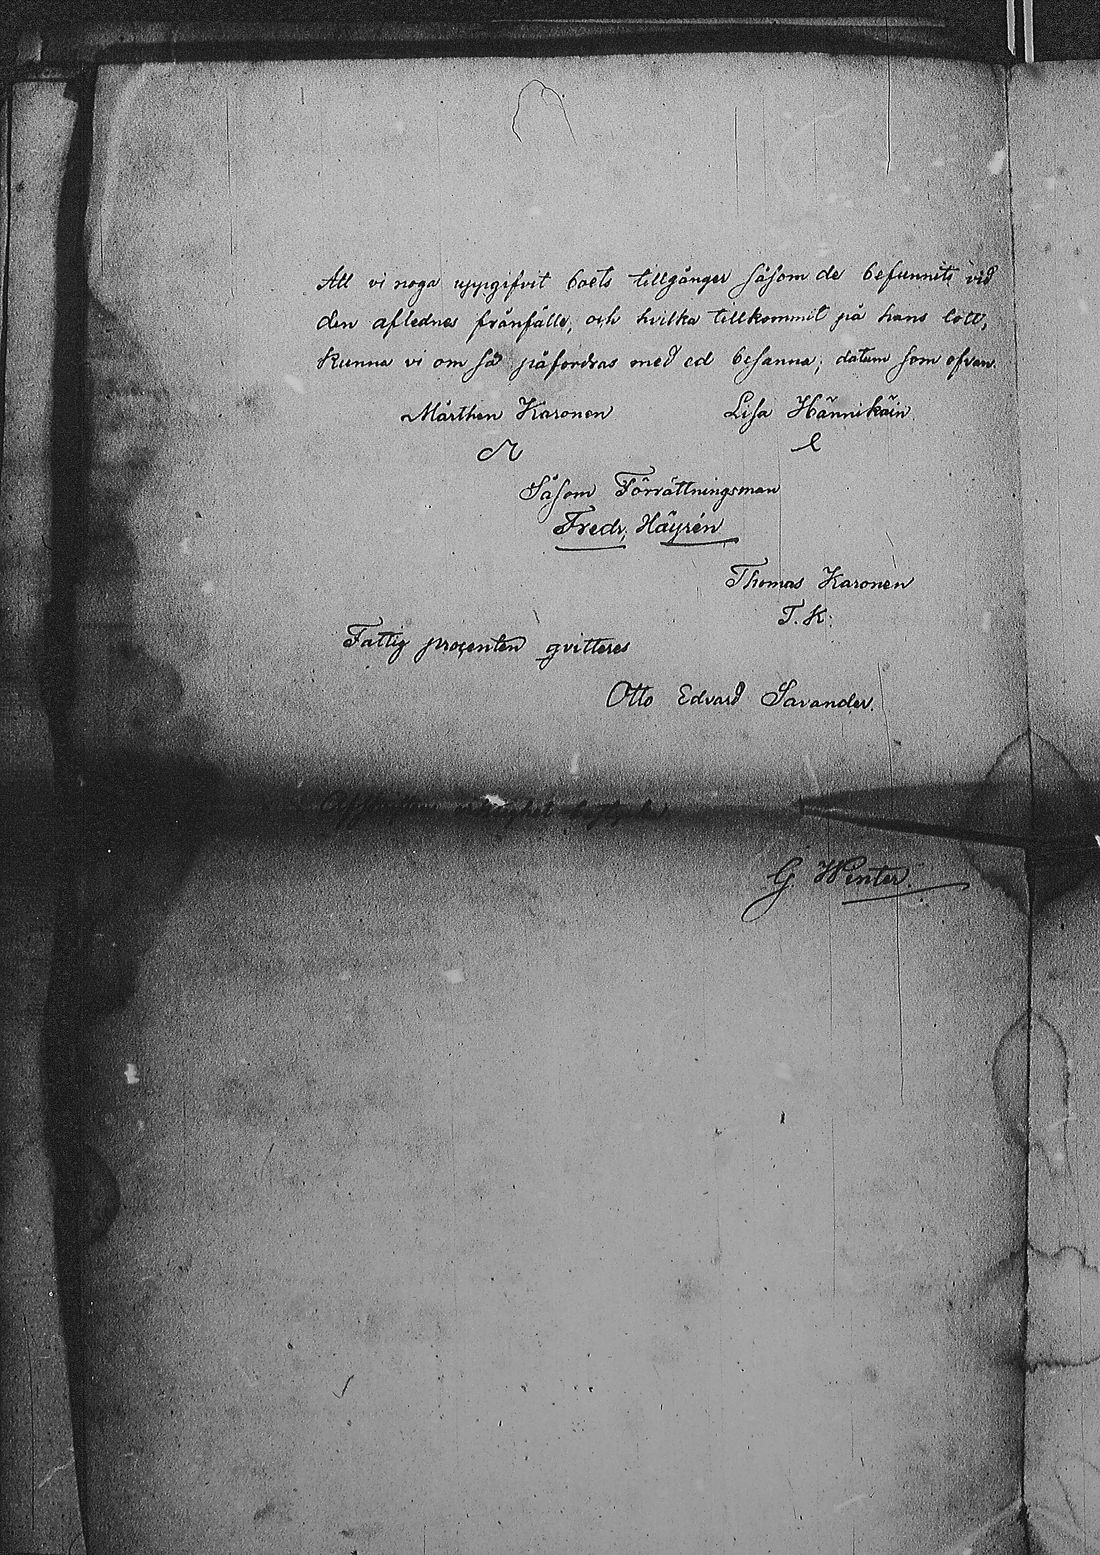 Att vi noga uppgifvit boets tillgånger såsom de befunnits vid
den aflednes frånfälle, och hvilka tillkommit på hans lott,
kunna vi om så påfordras med ed besanna; datum som ofvan.
Mårthen Karonen Lisa Hännikäin
M L
Såsom Förrättningsman
Fredr. Häyrén
Thomas Karonen
T. K.
Fattig procenten qvitteres
Otto Edvard Savander.
Afskriftens riktighet
G Winter.